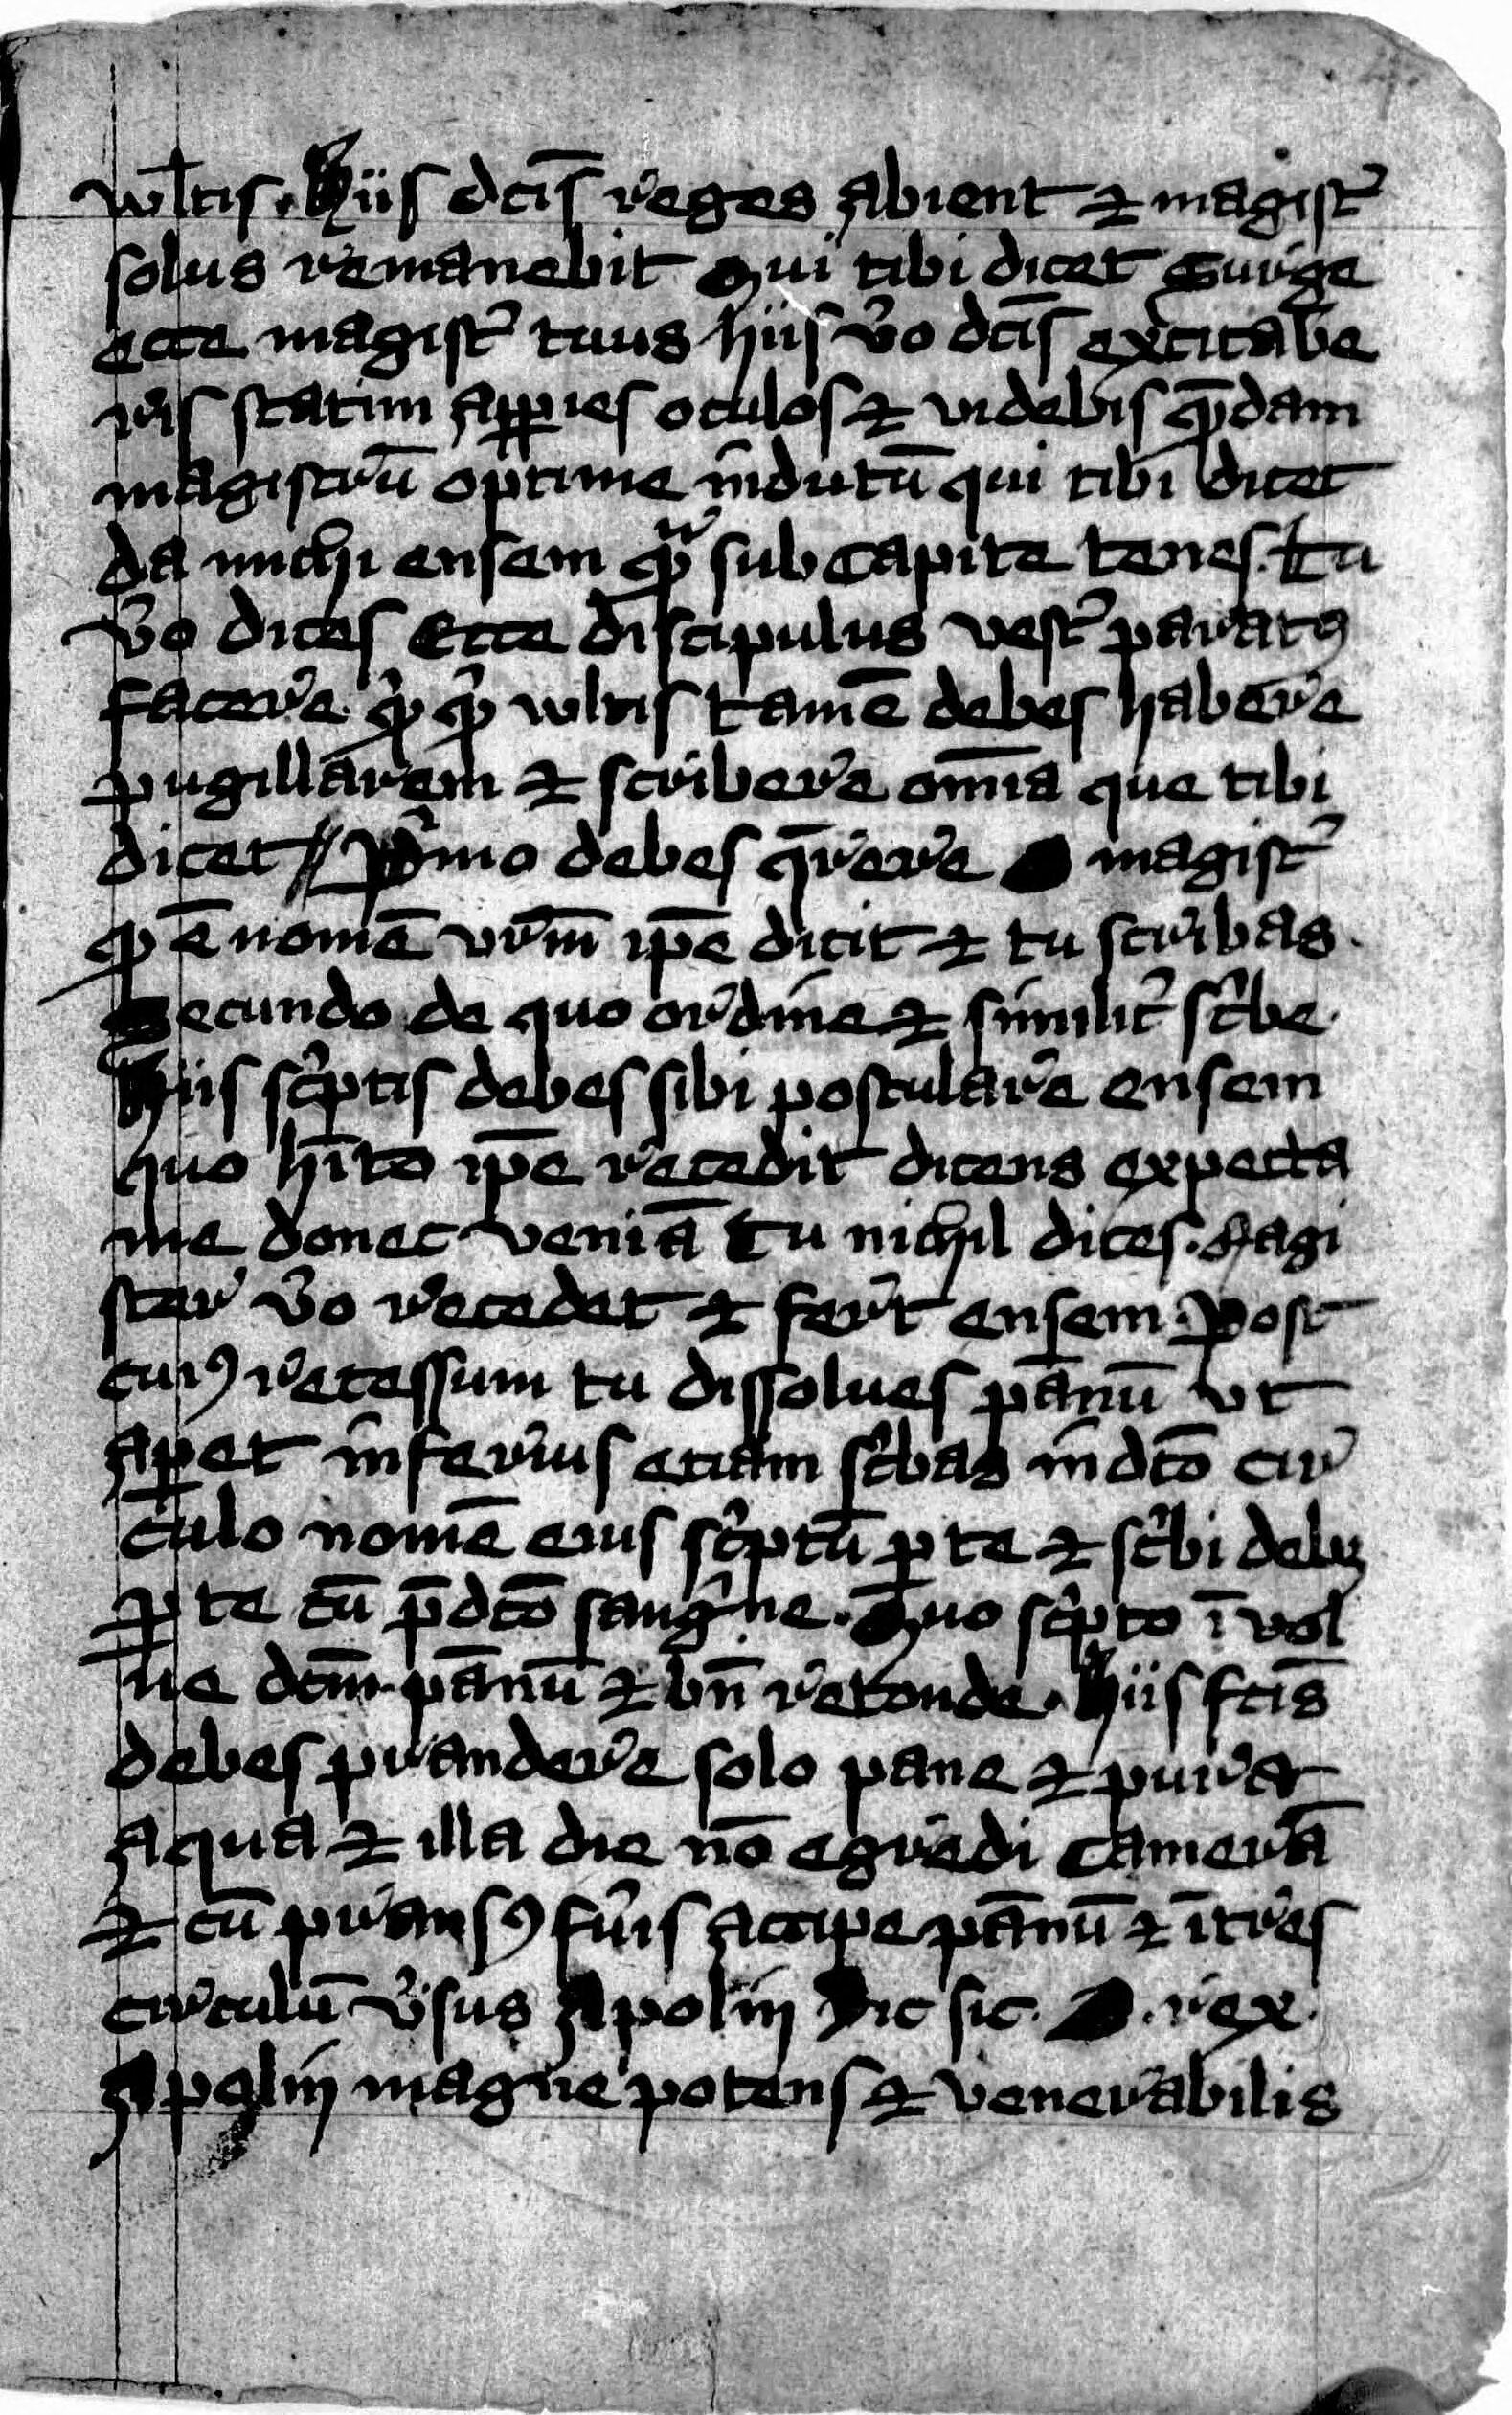 wltis. Hiis dc̄is reges abient ⁊ magist᷒
solus remanebit Qui tibi dicet Surge
ecce magist᷒ tuus hiis v᷒o dc̄is excitabe
ris statim apꝑies oculos ⁊ videbis quēdam
magistrū optime īndutū qui tibi dicet
da michi ensem quem sub capite tenes. Tu
v᷒o dices Ecce discipulus vest᷒ paratꝰ
facere qͥ qͥ wltis tamē debes habere
pugillarem ⁊ scribere om̄ia que tibi
dicet // Pͥmo debes q̄rere magist᷒
ꝙ ē nomē vr̄m ip̄e dicit ⁊ tu scribas.
Secundo de quo ordine ⁊ similit᷒ scͥbe.
Hiis scͥptis debes sibi postulare ensem
quo hīto ip̄e recedit dicens expecta
me donec veniā Tu nichil dices. Magi
ster v᷒o recedet ⁊ fert ensem. Post
cuiꝰ recessum tu dissolues pānū vt
aꝑet īnferius etiam scͥbas īn dc̄o cir
culo nomē eius scͥptū ꝑ te ⁊ scͥbi debꝫ
ꝑ te cū p̄dc̄o sangͥne. Quo scͥpto ī vol
ue dc̄m pānū ⁊ bn̄ reconde. Hiis fc̄is
debes prandere solo pane ⁊ pura
aqua ⁊ illa die nō egredi camerā
⁊ cū pransꝰ fu᷒is accipe pānū ⁊ īt᷒es
circulū v᷒sus Apolin Dic sic. O. rex.
Apolin magne potens ⁊ venerabilis